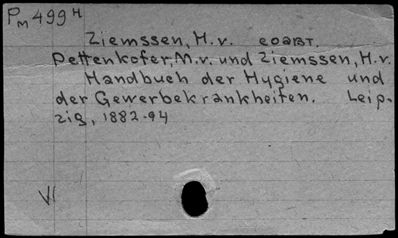 Pm 499 H
Ziemssen, H. v. eoabt.
Pettenkofer, M. v. und Ziemssen, H. v.
Handbuch der Hygiene und
der Gewerbekrankheiten. Leip-
zig, 1882-94
VI